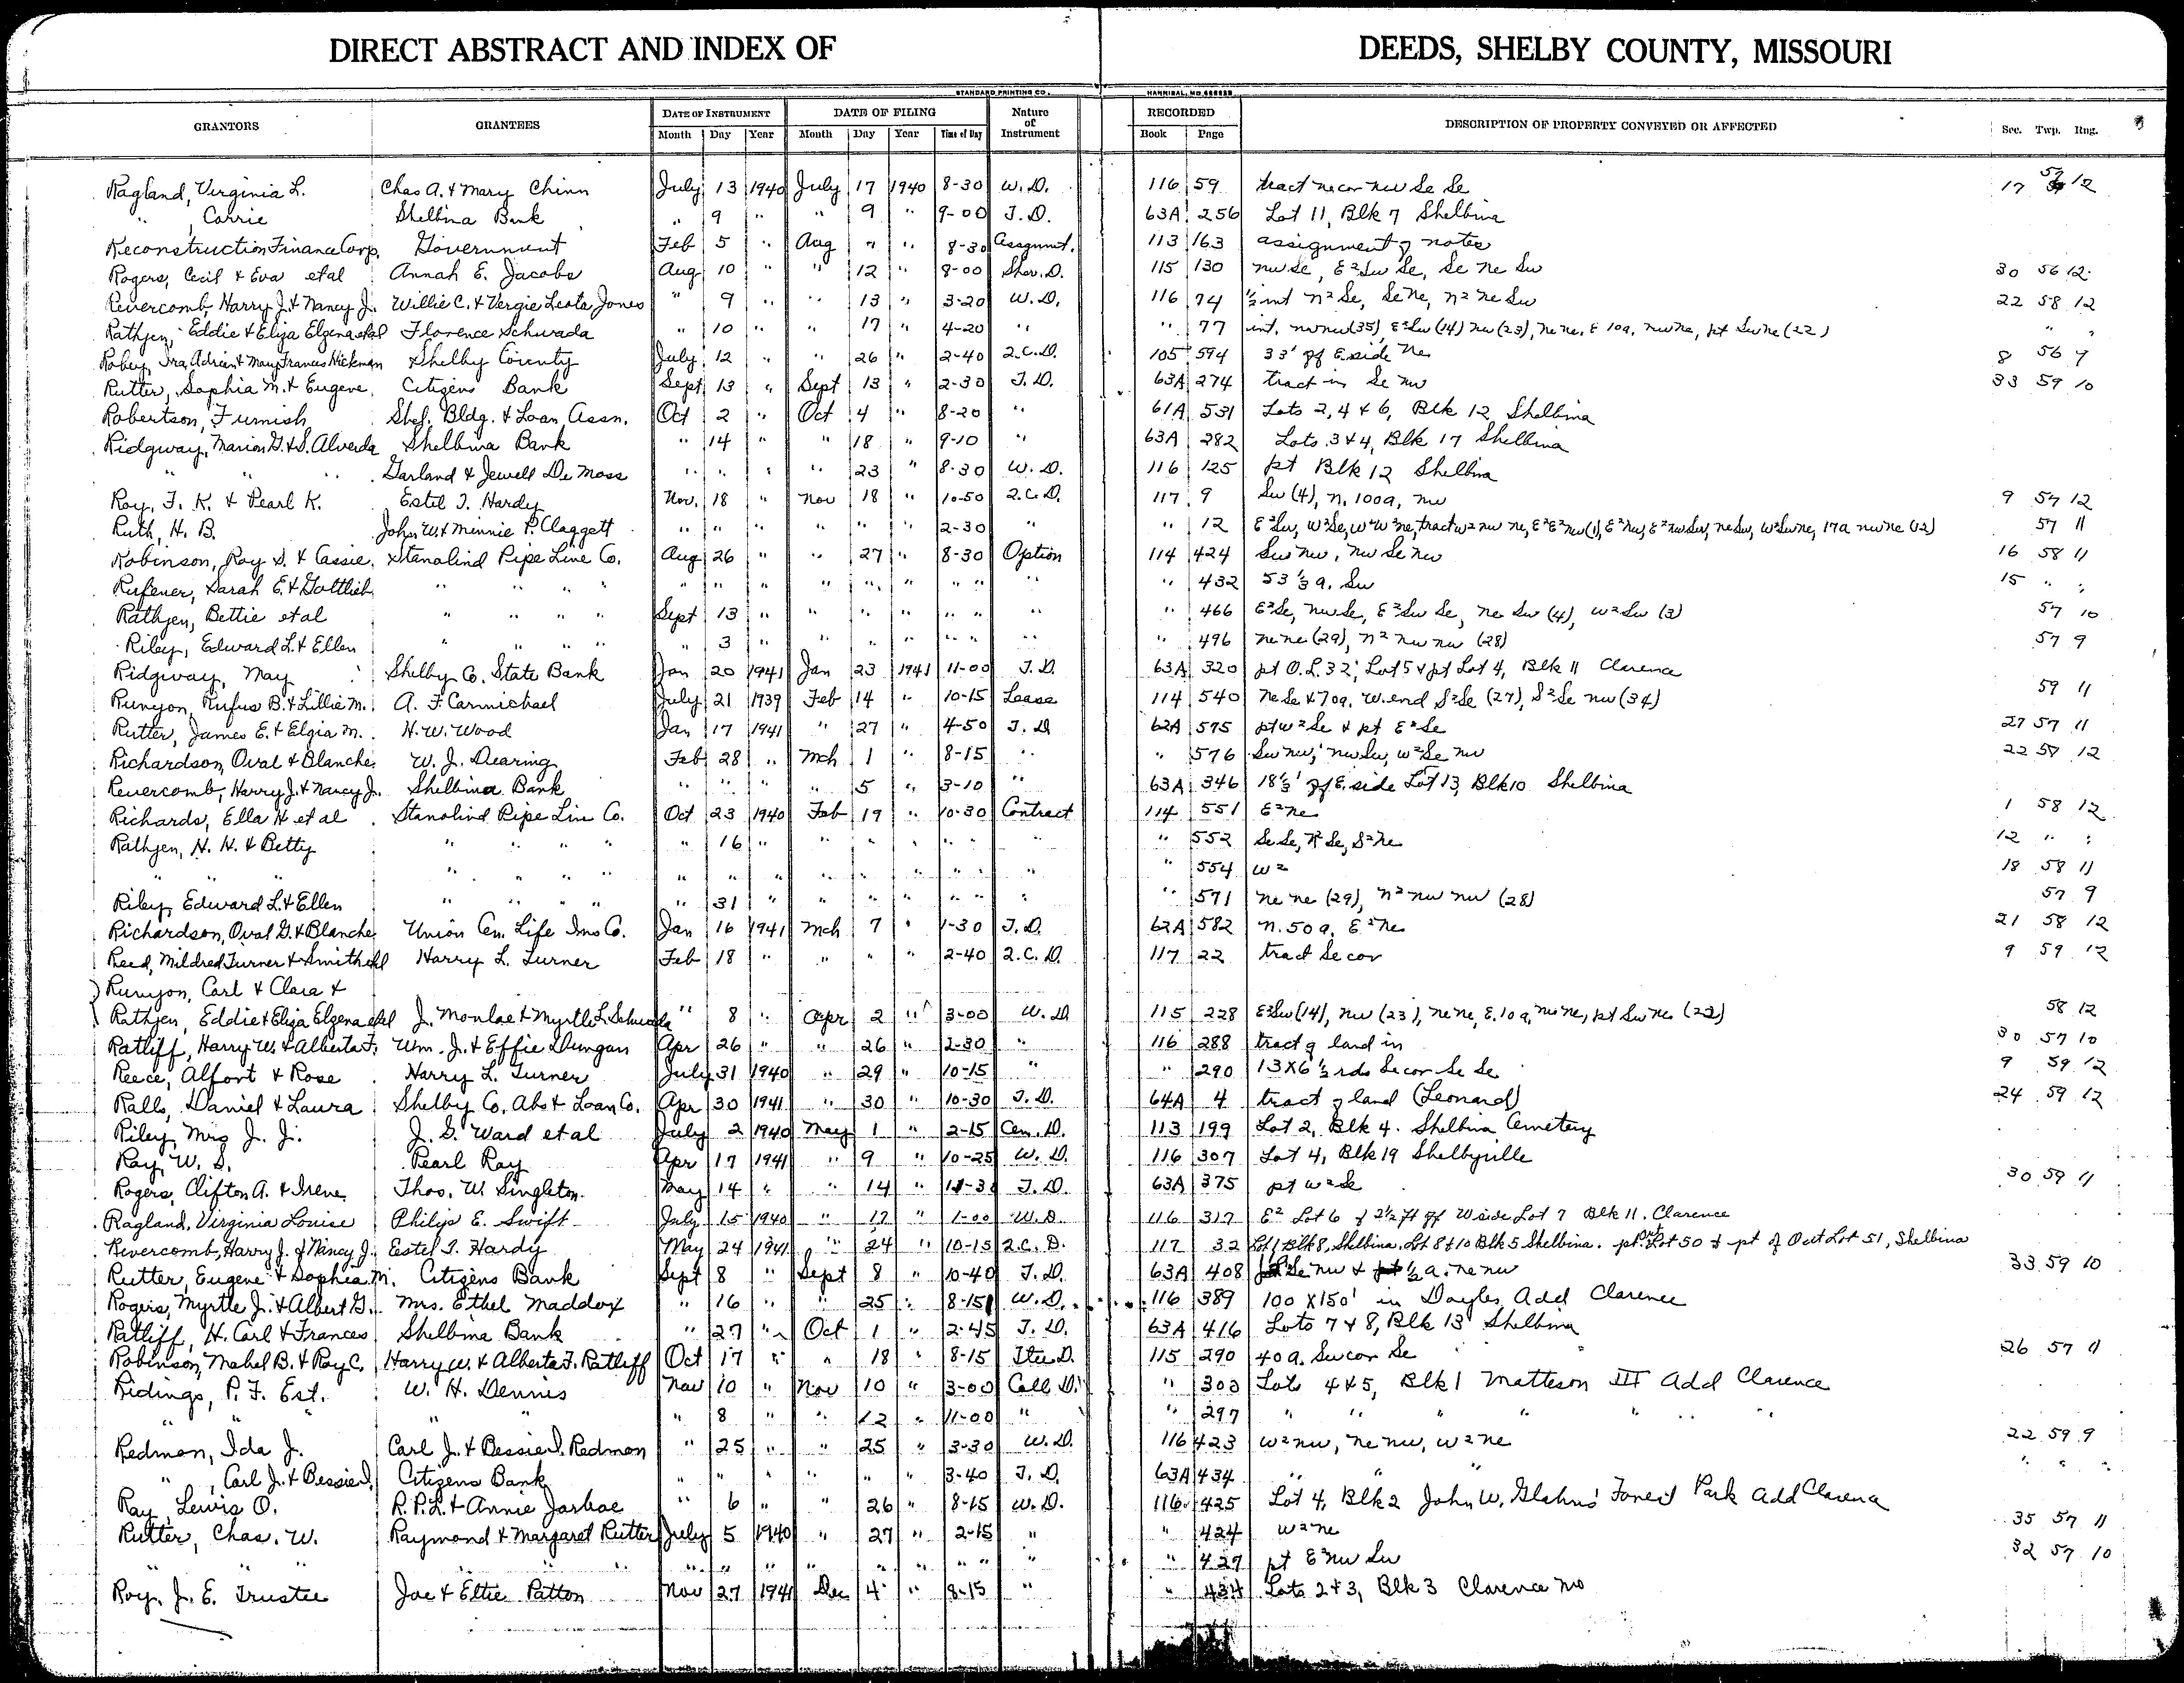 DIRECT ABSTRACT AND INDEX OF DEEDS, SHELBY COUNTY, MISSOURI
STANDARD PRINTING CO. HANNIBAL, MO.
GRANTORS GRANTEES DATE OF INSTRUMENT DATE OF FILING Nature of Instrument RECORDED DESCRIPTION OF PROPERTY CONVEYED OR AFFECTED Sec. Twp. Rng.
Month Day Year Month Day Year Time of Day Book Page
Ragland, Virginia L. Chas A. & Mary Chinn July 13 1940 July 17 1940 8-30 W.D. 116 59 tract ne cor nw Se Se 17 57 12
" Carrie Shelbina Bank " 9 " " 9 " 9-00 T.D. 63A 256 Lot 11, Blk 7 Shelbina
Reconstruction Finance Corp. Government Feb 5 " Aug " " 8-30 Assgnmt. 113 163 assignment of notes
Rogers, Cecil & Eva et al Annah E. Jacobs Aug 10 " " 12 " 8-00 Sher. D. 115 130 nw Se, E²Sw Se, Se ne Sw 30 56 12
Revercomb, Harry J. & Nancy J. Willie C. & Vergie Leota Jones " 9 " " 13 " 3-20 W.D. 116 74 ½ int n² Se, Se ne, n² ne Sw 22 58 12
Rathjen, Eddie & Eliza Elzena et al Florence Schwada " 10 " " 17 " 4-20 " " 77 int. nw nw (35), E²Sw (14) nw (23), ne ne, E 10a, nw ne, pt Sw ne (22) " "
Robey, Ira, Adrian & Mary Frances Hickman Shelby County July 12 " " 26 " 2-40 2.C.D. 105 594 33' off E side ne 8 56 9
Rutter, Sophia M. & Eugene Citizens Bank Sept 13 " Sept 13 " 2-30 T.D. 63A 274 tract in Se nw 33 59 10
Robertson, Furnish Shel. Bldg. & Loan Assn. Oct 2 " Oct 4 " 8-20 " 61A 531 Lots 2, 4 & 6, Blk 12, Shelbina
Ridgway, Marion G. & S. Alverda Shelbina Bank " 14 " " 18 " 9-10 " 63A 282 Lots 3 & 4, Blk 17 Shelbina
" " " Garland & Jewell De Moss " " " " 23 " 8-30 W.D. 116 125 pt Blk 12 Shelbina
Roy, F. K. & Pearl K. Estel T. Hardy Nov. 18 " Nov 18 " 10-50 2.C.D. 117 9 Sw (4), n. 100a, nw 9 57 12
Ruth, H. B. John W. & Minnie P. Claggett " " " " " " 2-30 " " 12 E²Sw, W²Se, W²W²ne, tract w² nw ne, E²E²nw (1), E²nw, E²nw Sw, ne Sw, W²Sw ne, 17a nw ne (12) 57 11
Robinson, Roy S. & Cassie Stanolind Pipe Line Co. Aug 26 " " 27 " 8-30 Option 114 424 Sw nw, nw Se nw 16 58 11
Rufener, Sarah E. & Gottlieb " " " " " " " " " " " " " " 432 53⅓ a. Sw 15 " "
Rathjen, Bettie et al " " " " Sept 13 " " " " " " " " 466 E²Se, nw Se, E²Sw Se, ne Sw (4), w² Sw (3) 57 10
Riley, Edward L. & Ellen " " " " " 3 " " " " " " " " 496 ne ne (29), n² nw nw (28) 57 9
Ridgway, May Shelby Co. State Bank Jan 20 1941 Jan 23 1941 11-00 T.D. 63A 320 pt O.L. 32; Lot 5 & pt Lot 4, Blk 11 Clarence
Runyon, Rufus B. & Lillie M. A. F. Carmichael July 21 1939 Feb 14 " 10-15 Lease 114 540 ne Se & 70a. W. end S²Se (27), S²Se nw (34) 59 11
Rutter, James E. & Elgia M. H. W. Wood Jan 17 1941 " 27 " 4-50 T.D. 62A 575 pt w² Se & pt E² Se 27 57 11
Richardson, Oval & Blanche W. J. Dearing Feb 28 " Mch 1 " 8-15 " " 576 Sw nw, nw Sw, w² Se nw 22 58 12
Revercomb, Harry J. & Nancy J. Shelbina Bank " " " " 5 " 3-10 " 63A 346 18⅓' off E. side Lot 13, Blk 10 Shelbina
Richards, Ella H et al Stanolind Pipe Line Co. Oct 23 1940 Feb 19 " 10-30 Contract 114 551 E² ne 1 58 12
Rathjen, H. H. & Betty " " " " " 16 " " " " " " " " 552 Se Se, n² Se, S² ne 12 " "
" " " " " " " " " " " " " " " " " 554 w² 18 58 11
Riley, Edward L. & Ellen " " " " " 31 " " " " " " " " 571 ne ne (29), n² nw nw (28) 57 9
Richardson, Oval G. & Blanche Union Cen. Life Ins Co. Jan 16 1941 Mch 7 " 1-30 T.D. 62A 582 n. 50a. E² ne 21 58 12
Reed, Mildred Turner & Smith et al Harry L. Turner Feb 18 " " " " 2-40 2.C.D. 117 22 tract Se cor 9 59 12
Runyon, Carl & Clara &
Rathjen, Eddie & Eliza Elzena et al J. Monlae & Myrtle L. Schwada " 8 " Apr 2 " 3-00 W.D. 115 228 E²Sw (14), nw (23), ne ne, E. 10a, nw ne, pt Sw ne (22) 58 12
Ratliff, Harry W. & Alberta F. Wm. J. & Effie Dungan Apr 26 " " 26 " 2-30 " 116 288 tract of land in 30 57 10
Reece, Alfort & Rose Harry L. Turner July 31 1940 " 29 " 10-15 " " 290 13X6½ rds Se cor Se Se 9 59 12
Ralls, Daniel & Laura Shelby Co. Abs & Loan Co. Apr 30 1941 " 30 " 10-30 T.D. 64A 4 tract of land (Leonard) 24 59 12
Riley, Mrs J. J. J. S. Ward et al July 2 1940 May 1 " 2-15 Cem. D. 113 199 Lot 2, Blk 4. Shelbina Cemetery
Ray, W. S. Pearl Ray Apr 17 1941 " 9 " 10-25 W.D. 116 307 Lot 4, Blk 19 Shelbyville
Rogers, Clifton A. & Irene Thos. W. Singleton May 14 " " 14 " 11-30 T.D. 63A 375 pt w² Se 30 59 11
Ragland, Virginia Louise Philip E. Swift July 15 1940 " 17 " 1-00 W.D. 116 317 E² Lot 6 & 2½ ft off W side Lot 7 Blk 11. Clarence
Revercomb, Harry J. & Nancy J. Estel T. Hardy May 24 1941 " 24 " 10-15 2.C.D. 117 32 Lot 1 Blk 8, Shelbina, Lot 8 & 10 Blk 5 Shelbina. pt Lot 50 & pt of Out Lot 51, Shelbina
Rutter, Eugene & Sophia M. Citizens Bank Sept 8 " Sept 8 " 10-40 T.D. 63A 408 Se nw & ½ a. ne nw 33 59 10
Rogers, Myrtle J. & Albert G. Mrs. Ethel Maddox " 16 " " 25 " 8-15 W.D. 116 389 100 X 150' in Dayles Add Clarence
Ratliff, H. Carl & Frances Shelbina Bank " 27 " Oct 1 " 2-45 T.D. 63A 416 Lots 7 & 8, Blk 13 Shelbina
Robinson, Mabel B. & Roy C. Harry W. & Alberta F. Ratliff Oct 17 " " 18 " 8-15 D. 115 290 40a. Sw cor Se 26 57 11
Ridings, P. F. Est. W. H. Dennis Nov 10 " Nov 10 " 3-00 Coll. D. " 303 Lots 4 & 5, Blk 1 Matteson III Add Clarence
" " " " " 8 " " 12 " 11-00 " " 297 " " " " " " "
Redman, Ida J. Carl J. & Bessie D. Redman " 25 " " 25 " 3-30 W.D. 116 423 w² nw, ne nw, w² ne 22 59 9
" , Carl J. & Bessie D. Citizens Bank " " " " " " 3-40 T.D. 63A 434 " " " " " "
Ray, Lewis O. R.P.L. & Annie Jarboe " 6 " " 26 " 8-15 W.D. 116 425 Lot 4, Blk 2 John W. Glahns' Forest Park Add Clarence
Rutter, Chas. W. Raymond & Margaret Rutter July 5 1940 " 27 " 2-15 " " 424 w² ne 35 57 11
" " " " " " " " " " " " " " " 427 pt E² nw Sw 32 57 10
Roy, J. E. Trustee Joe & Eltie Patton Nov 27 1941 Dec 4 " 8-15 " " 434 Lots 2 & 3, Blk 3 Clarence Mo